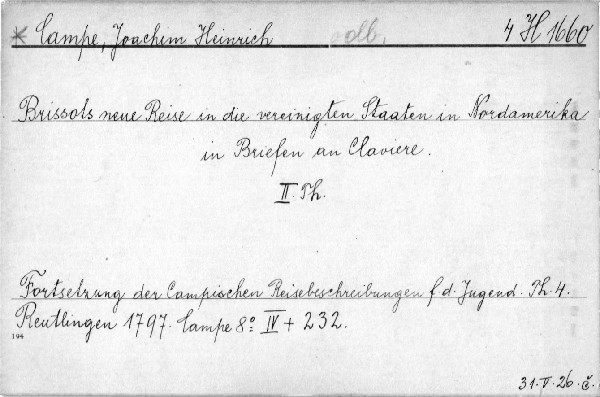 * Campe, Joachim Heinrich odb. 4 H 1660
Brissots neue Reise in die vereinigten Staaten in Nordamerika
in Briefen an Claviere.
II. Th.
Fortsetzung der Campischen Reisebeschreibungen f. d. Jugend. Th. 4.
Reutlingen 1797. Campe 8° IV + 232.
194
31. V. 26. č.